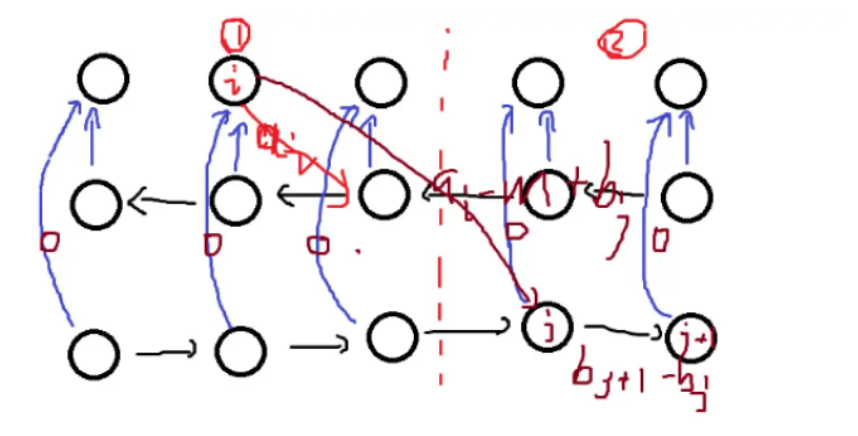 1 2
i
a_i - v
a_i - M + b_j
0 0 0 0 0
j j+1
b_{j+1} - b_j